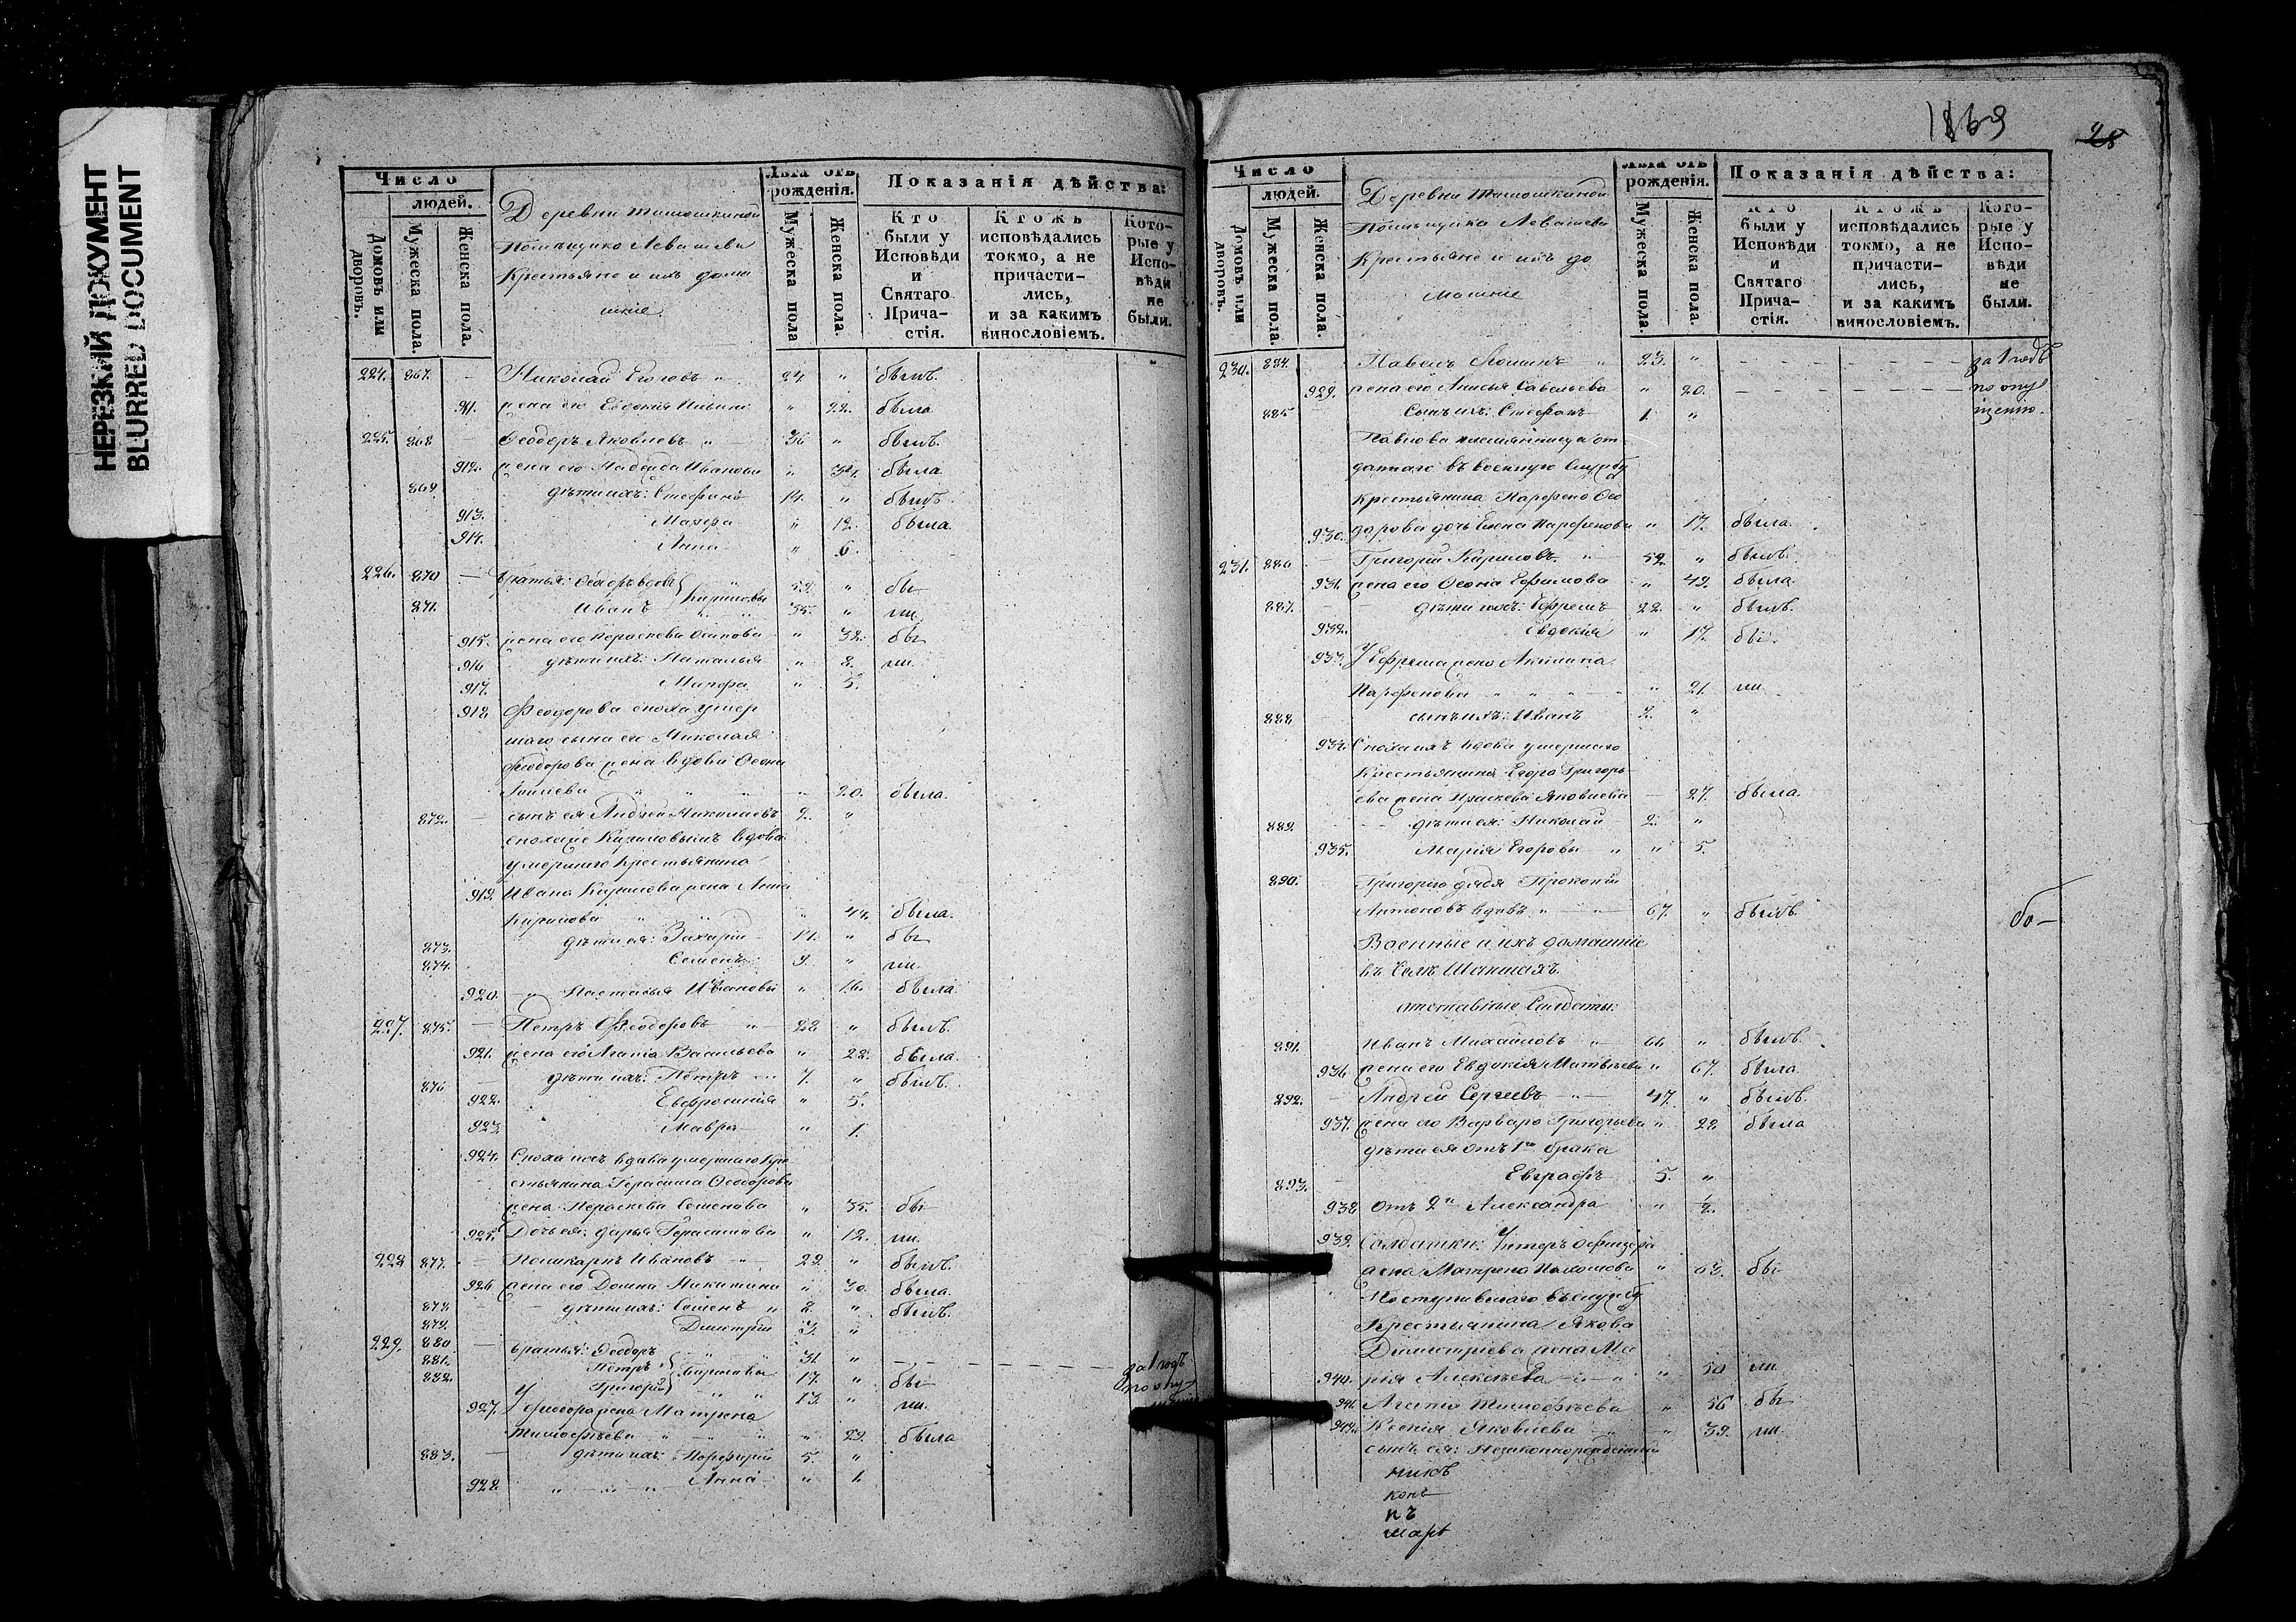 НЕРЕЗКИЙ ДОКУМЕНТ
BLURRED DOCUMENT
Число
людей.
Домовъ или дворовъ.
Мужеска пола.
Женска пола.
Деревни Тимошкиной
Помѣщика Левашева
Крестьяне и ихъ дома
шніе
Лѣта отъ рожденія.
Мужеска пола
Женска пола.
Показанія дѣйства:
Кто были у Исповѣди и Святаго Причастія.
Ктожъ исповѣдались токмо, а не причастились, и за какимъ винословіемъ.
Которые у Исповѣди не были.
224. 867. — Николай Егоровъ " 24. " былъ.
911. жена его Евдокія " 22. была
225. 868 — Ѳеодоръ Яковлевъ " 36 " былъ.
912. жена его Надежда Иванова " 34. была.
869 дѣти ихъ: Стефанъ 14. " былъ
913. Марѳа " 12. была.
914. Анна " 6.
226. 870 — братья: Ѳеодоръ вдовъ 59. " бы
871. Иванъ Кириловы 35. " ли.
915. жена его Параскева " 32. бы
916 дѣти ихъ: Наталья " 8. ли.
917. Марѳа " 5.
918 Ѳеодорова сноха умер
шаго сына его Николая
Ѳеодорова жена вдова
" 20. была.
872. — сынъ ея Андрей Николаевъ 2. "
вдова
умершаго Крестьянина
919. Ивана Кирилова жена Анна
Кирилова " 44. была.
873. дѣти ея: Захарій 11. " бы
874. Семенъ 9. " ли.
920. " Настасья Ивановы " 16. была
227. 875. — Петръ Ѳеодоровъ " 28 " былъ.
921. жена его Агапія Васильева " 28. была.
876 — дѣти ихъ: Петръ 7. " былъ.
922. Евфросинія " 5.
923. Мавра " 1.
924. Сноха ихъ вдова умершаго Кре
стьянина Герасима Ѳеодорова
жена Параскева Семенова " 35. бы
925. Дочь ея: Дарья Герасимова " 12. ли.
228 877. — Ивановъ 29. " былъ.
926 жена его Домна Никитина " 30. была.
878 — дѣти ихъ: Семенъ " 8. " былъ.
879. Димитрій 3. "
229. 880 — братья: Ѳеодоръ 31 " за 1 годъ
881. Петръ 17. " бы
882. Григорій 13. " ли.
927. У Ѳеодора жена Матрена
Тимофѣева " 29. была
883. — дѣти ихъ: Порфирій 5. "
928 Анна " 1.
1869
28
Число
людей.
Домовъ или дворовъ.
Мужеска пола.
Женска пола.
Деревни Тимошкиной
Помѣщика Левашева
Крестьяне и ихъ до
машніе
Лѣта отъ рожденія.
Мужеска пола.
Женска пола.
Показанія дѣйства:
Кто были у Исповѣди и Святаго Причастія.
Ктожъ исповѣдались токмо, а не причастились, и за какимъ винословіемъ.
Которые у Исповѣди не были.
230. 884. Павелъ " 23. " за 1 годъ
929. жена его Анисья Савельева " 20. по опу
885 Сынъ ихъ: Стефанъ 1. " щенію.
Павлова племянница от
даннаго въ военную службу
Крестьянина Парфена Ѳео
930. дорова дочь Елена Парфенова " 17. была.
231. 886 — Григорій Кириловъ " 52. " былъ.
931. жена его Ефимова " 49. была.
887. дѣти ихъ: Ефремъ 22. " былъ.
932. Евдокія " 17. бы
933. У Ефрема жена Акилина
Парфенова " 21. ли.
888 — сынъ ихъ: Иванъ 2. "
934. Сноха ихъ вдова умершаго
Крестьянина Егора Григорь
ева жена Праскева Яковлева — 27. была.
889. дѣти ея: Николай 2. "
935. Марія Егоровы " " 5.
890. Григорію дядя Прокопій
Антоновъ вдовъ " 67. " былъ.
Военные и ихъ домашніе
въ Селѣ
отставные Солдаты:
891. — Иванъ Михайловъ 66 " былъ.
936 жена его Евдокія Матвѣева " 67. была
892. — Андрей Сергеевъ 47. " былъ.
937. жена его Варвара Григорьева " 28 была
дѣти ея отъ 1го брака
893. Евграфъ 5. "
938 отъ 2го Александра " ½.
939. Солдатки: Унтеръ Офицера
жена Матрена Пахомова " 63. бы
Поступившаго въ службу
Крестьянина Якова
Димитріева жена Ма
940. рія Алексѣева " 50 ли.
941. Агапія Тимофѣева " 56 бы
942. Ксенія Яковлева " 39. ли.
сынъ ея: Незаконнорожденный